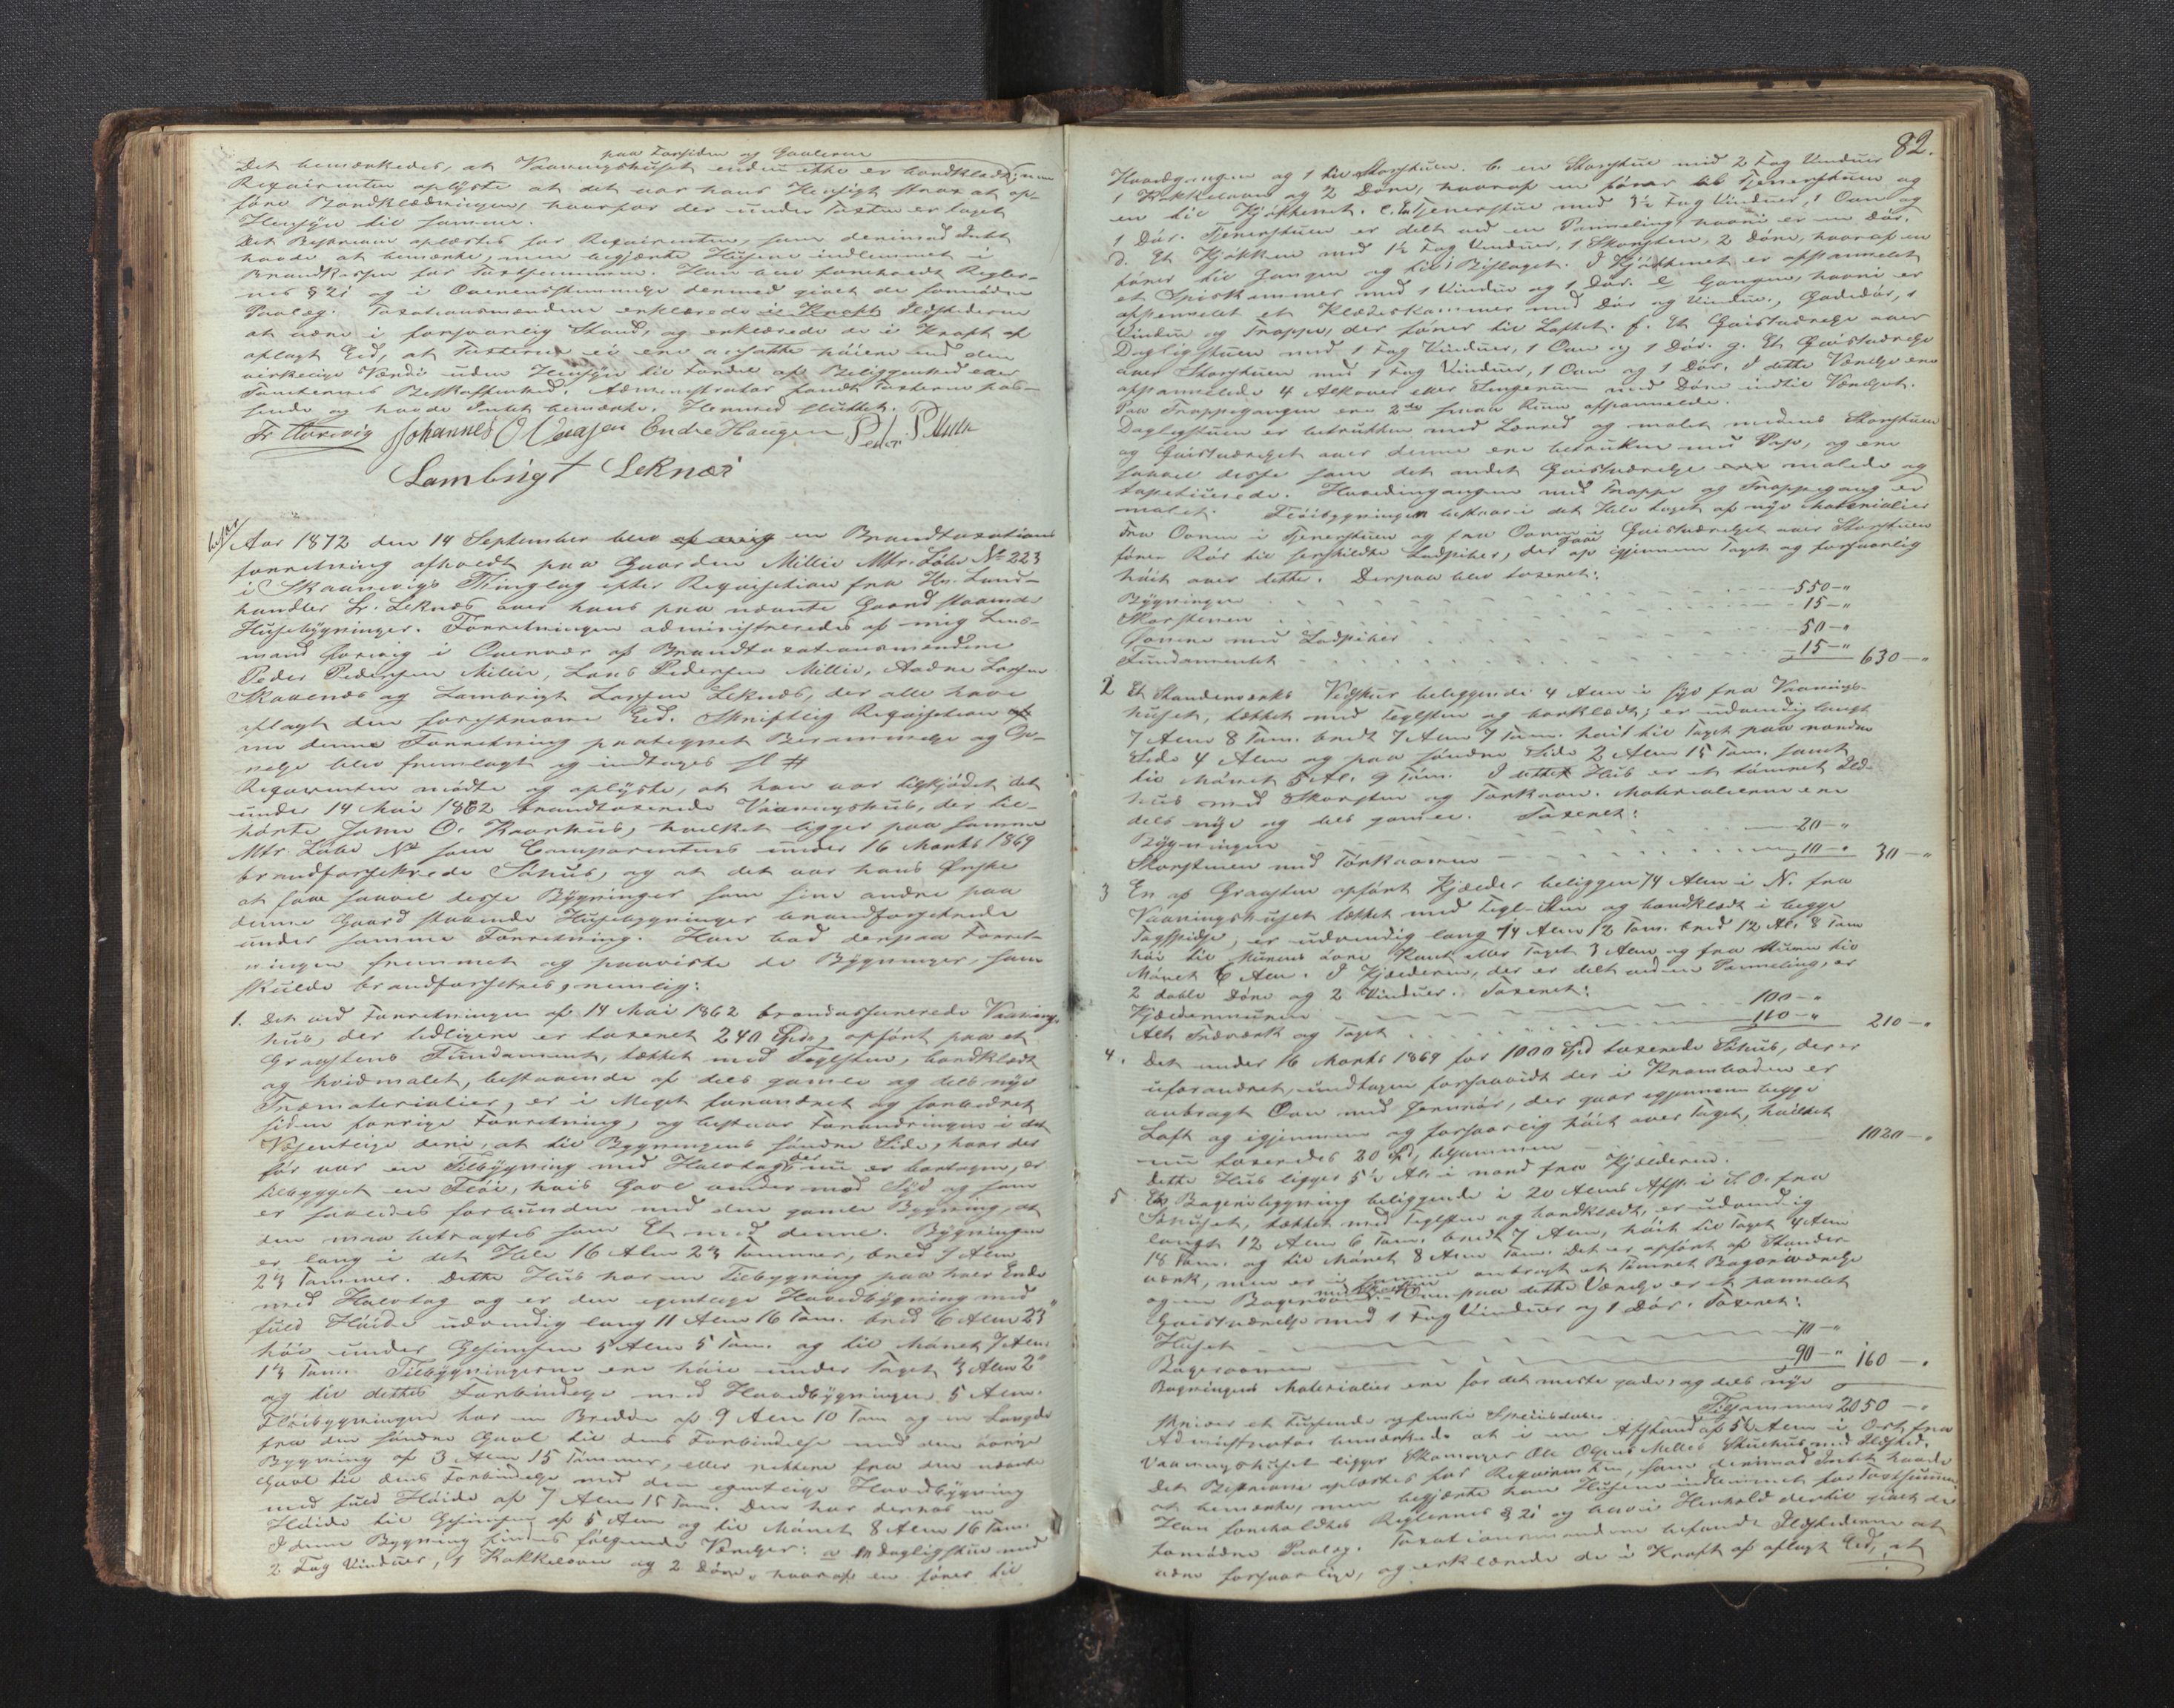 paa Forsiden og Gavlerne
Det bemærkedes, at Vaaningshuset endnu ikke er bordklædt; men
Reqvirenten oplyste at det var hans Hensigt strax at op-
føre Bordklædningen, hvorfor der under Taxten er taget
Hensyn til samme.
Det Beskrevne oplæstes for Reqvirenten, som derimod Intet
havde at bemærke, men begjærte Husene indlemmet i
Brandkassen for Taxtsummen. Han blev foreholdt Regler-
nes § 21 og i Overensstemmelse dermed givet de fornødne
Paalæg. Taxationsmændene erklærede i Kraft Ildstederne
at være i forsvarlig Stand, og erklærede de i Kraft af
aflagt Eed, at Taxterne ei ere ansatte høiere end den
virkelige Værdi uden Hensyn til Fordel af Beliggenhed eller
Tomternes Beskaffenhed. Administrator fandt Taxterne pas-
sende og havde Intet bemærke. Hermed sluttet.
Fr Horvig Johannes O Vaagen Endre Haugen Peder P Millie
Lambrigt Leknæs
Aar 1872 den 14 September blev af mig en Brandtaxations
forretning afholdt paa Gaarden Millie Mtr. Løbe No 223
i Skaanevigs Thinglag efter Reqvisition fra Hr. Land-
handler Lr. Leknæs over hans paa nævnte Gaard staaende
Husebygninger. Forretningen administreredes af mig Lens-
mand Horvig i Overvær af Brandtaxationsmændene
Peder Pedersen Millie, Lars Pedersen Millie, Aadne Larsen
Skaanæs og Lambrigt Larsen Leknæs, der alle have
aflagt den foreskrevne Eed. Skriftlig Reqvisition af
om denne Forretning paategnet Berammelse og Op-
nelse blev fremlagt og indtages sl #
Reqvirenten mødte og oplyste, at han var tilskjødet det
under 14 Mai 1862 brandtaxerede Vaaningshus, der til-
hørte John O. Kaarhus, hvilket ligger paa samme
Mtr. Løbe No som Comparentens under 16 Marts 1869
brandforsikrede Søhus, og at det var hans Ønske
at faa saavel disse Bygninger som sine andre paa
denne Gaard staaende Husebygninger brandforsikrede
under samme Forretning. Han bad derpaa Forret-
ningen fremmet og paaviste de Bygninger, som
skulde brandforsikres, nemlig:
1. Det ved Forretningen af 14 Mai 1862 brandassurerede Vaanings-
hus, der tidligere er taxeret 240 Spd, opført paa et
Graastens Fundament, tækket med Teglsten, bordklædt
og hvidmalet, bestaaende af dels gamle og dels nye
Træmaterialier, er i Meget forandret og forbedret
siden forrige Forretning, og bestaar Forandringen i det
Væsentlige deri, at til Bygningens søndre Side, hvor der
før var en Tilbygning med Halvtag, der nu er borttagen, er
tilbygget en Fløi, hvis Gavl vender mod Syd og som
er saaledes forbunden med den gamle Bygning, at
den maa betragtes som Et med denne. Bygningen
er lang i det Hele 16 Alen 23 Tommer, bred 7 Alen
23 Tommer. Dette Hus har en Tilbygning paa hver Ende
med Halvtag og er den egentlige Hovedbygning med
fuld Høide udvendig lang 11 Alen 16 Tom. bred 6 Alen 23"
høi under Gesimsen 5 Alen 5 Tom. og til Mønet 7 Alen
13 Tom. Tilbygningerne ere høie under Taget 3 Alen 2"
og til dettes Forbindelse med Hovedbygningen 5 Alen.
Fløibygningen har en Bredde af 9 Alen 10 Tom og en Længde
fra den søndre Gavl til dens Forbindelse med den øvrige
Bygning af 3 Alen 15 Tommer, eller rettere fra den nævnte
Gavl til dens Forbindelse med den egentlige Hovedbygning
med fuld Høide af 7 Alen 15 Tom. Den har derhos en
Høide til Gesimsen af 5 Alen og til Mønet 8 Alen 16 Tom.
I denne Bygning findes følgende Værelser: a En Dagligstue med
2 Fag Vinduer, 1 Kakkelovn og 2 Døre, hvoraf en fører til
82.
Hovedgangen og 1 til Storstuen. b. en Storstue med 2 Fag Vinduer
1 Kakkelovn og 2 Døre, hvoraf en fører til Tjenerstuen og
en til Kjøkkenet. c. En Tjenerstue med 3½ Fag Vinduer, 1 Ovn og
1 Dør. Tjenerstuen er delt ved en Panneling, hvori er en Dør.
d. Et Kjøkken med 1½ Fag Vinduer, 1 Skorsten, 2 Døre, hvoraf en
fører til Gangen og til Bislaget. I Kjøkkenet er afpannelet
et Spiskammer med 1 Vindue og 1 Dør. e Gangen, hvori er
afpannelet et Klædeskammer med Dør og Vindue, Gadedør, 1
Vindue og Trappe, der fører til Loftet. f. Et Gjæsteværelse over
Dagligstuen med 1 Fag Vinduer, 1 Ovn og 1 Dør. g. Et Gjæsteværelse
over Storstuen med 1 Fag Vinduer, 1 Ovn og 1 Dør. I dette Værelse ere
afpannelede 4 Alkover eller Sengerum med Døre indtil Værelset.
Paa Trappegangen ere 2de smaa Rum afpannelede.
Dagligstuen er betrukken med Lærred og malet medens Storstuen
og Gjæsteværelset over denne ere betrukne med Pap, og ere
saavel disse som det andet Gjæsteværelse malede og
tapetserede. Hovedingangen med Trappe og Trappegang er
malet. Fløibygningen bestaar i det Hele taget af nye Materialier
Fra Ovnen i Tjenerstuen og fra Ovnen i Gjæsteværelset over Storstuen
fører Rør til særskildte Ladpiber, der gaar op igjennem Taget og forsvarlig
høit over dette. Derpaa blev taxeret:
Bygningen 550 – "
Skorstenen 15 – "
Ovnene med Ladpiber 50 – "
Fundamentet 15 – " 630 – "
2 Et Standerværks Vedskur beliggende 4 Alen i Syd fra Vaanings-
huset, tækket med Teglsten og bordklædt; er udvendig langt
7 Alen 8 Tom. bredt 7 Alen 7 Tom. høit til Taget paa nordre
Side 4 Alen og paa søndre Side 2 Alen 15 Tom. samt
til Mønet 5 Al. 9 Tom. I dette Hus er et tømret Ild-
hus med Skorsten og Tørkeovn. Materialierne ere
dels nye og dels gamle. Taxeret:
Bygningen 20 – "
Skorstenen med Tørkeovnen 10 – " 30 – "
3 En af Graasten opført Kjælder beliggende 74 Alen i N. fra
Vaaningshuset tækket med Tegl-Sten og bordklædt i begge
Tagspidse, er udvendig lang 14 Alen 12 Tom. bred 12 Al. 8 Tom
høi til Murens øvre Kant eller Taget 3 Alen og fra Muren til
Mønet 6 Alen. I Kjælderen, der er delt ved en Panneling, er
2 doble Døre og 2 Vinduer. Taxeret:
Kjældermuren 100 – "
Alt Træværk og Taget 110 – " 210 – "
4. Det under 16 Marts 1869 for 1000 Spd taxerede Søhus, der er
uforandret, undtagen forsaavidt der i Kramboden er
anbragt Ovn med Jernrør, der gaar igjennem begge
Loft og igjennem og forsvarlig høit over Taget, hvilket
nu taxeredes 20 Spd, tilsammen 1020 – "
Dette Hus ligger 5½ Al. i nord fra Kjælderen.
5 En Bageribygning beliggende i 20 Alens Afst. i S.O. fra
Søhuset, tækket med Teglsten og bordklædt, er udvendig
langt 12 Alen 6 Tom. bredt 7 Alen, høit til Taget 4 Alen
18 Tom. og til Mønet 8 Alen Tom. Det er opført af Stander-
værk, men er i samme anbragt et tømret Bagerværelse
og en Bagerovn. Oven paa dette Værelse er et pannelet
Gjæsteværelse med 1 Fag Vinduer og 1 Dør. Taxeret:
Huset 70 – "
Bagerovnen 90 – " 160 – "
Bygningens Materialier ere for det meste gode, og dels nye
Tilsammen 2050 – "
skriver et Tusende og femti Speciesdaler.
Administrator bemærkede at i en Afstand af 50 Alen i Ost fra
Vaaningshuset ligger Skomager Ole Olsens Millie Stuehus med Ildsted.
Det Beskrevne oplæstes for Reqvirenten, som derimod Intet havde
at bemærke, men begjærte han Husene indlemmet for Taxtsummen.
Han foreholdtes Reglernes § 21 og blev i Henhold dertil givet de
fornødne Paalæg. Taxationsmændene befandt Ildstederne at
være forsvarlige, og erklærede de i Kraft af aflagt Eed, at